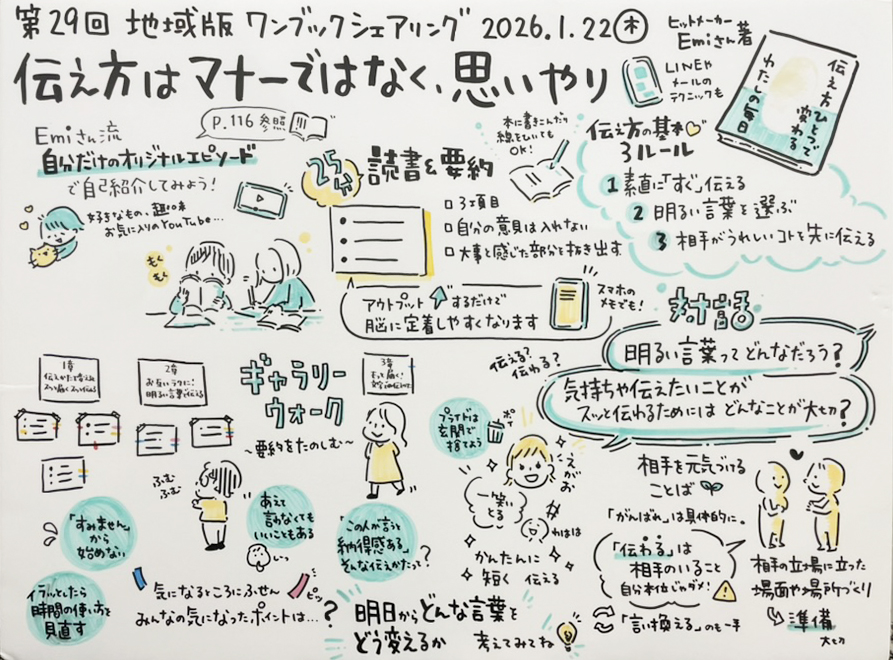 第29回 地域版 ワンブックシェアリング 2026.1.22㊍
伝え方はマナーではなく、思いやり
ヒットメーカー
Emiさん著
LINEや
メールの
テクニックも
伝え方ひとつで
変わる
わたしの毎日
P.116 参照
Emiさん流
自分だけのオリジナルエピソード
で自己紹介してみよう!
好きなもの、趣味
お気に入りのYouTube…
もく
もく
25分 読書&要約
本に書きこんだり
線をひいても
OK!
□3項目
□自分の意見は入れない
□大事と感じた部分を抜き出す
アウトプットするだけで
脳に定着しやすくなります
スマホの
メモでも!
伝え方の基本
3ルール
1 素直に「すぐ」伝える
2 明るい言葉を選ぶ
3 相手がうれしいコトを先に伝える
1章
2章
お互いラクに!
明るい言葉で伝える
3章
ギャラリー
ウォーク
~要約をたのしむ~
ふむ
ふむ
「すみません」
から
始めない
あえて
言わなくても
いいこともある
イラッとしたら
時間の使い方を
見直す
気になるところにふせん
ピッ
みんなの気になったポイントは…?
「この人が言うと
納得感ある」
そんな伝えかたって?
対話
明るい言葉ってどんなだろう?
気持ちや伝えたいことが
スッと伝わるためにはどんなことが大切?
伝える?
伝わる?
プライドは
玄関で
捨てよう
ポイ
えがお
一笑い
とる
わはは
かんたんに
短く 伝える
相手を元気づける
ことば
「がんばれ」は具体的に。
「伝わる」は
相手のいること
自分本位じゃダメ!
「言い換える」のも一手
相手の立場に立った
場面や場所づくり
準備
大切
明日からどんな言葉を
どう変えるか 考えてみてね